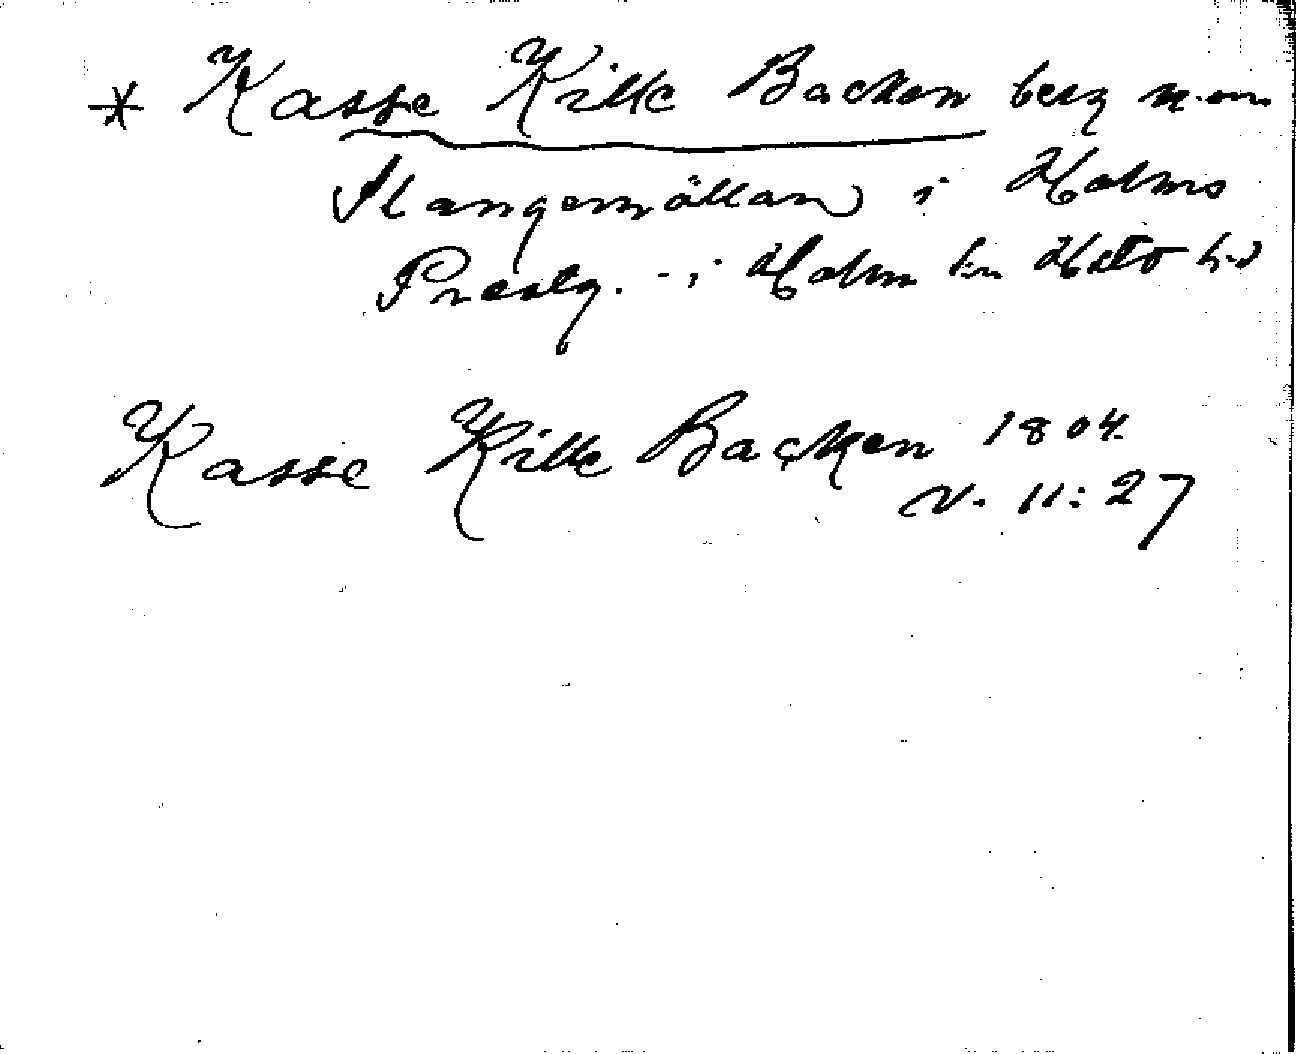 * Kasse Kille Backen berg n. om
Slangemöllan i Holms
Prestg. - i Holm sn Hsto hd
Kasse Kille Backen 1804.
V. 11:27